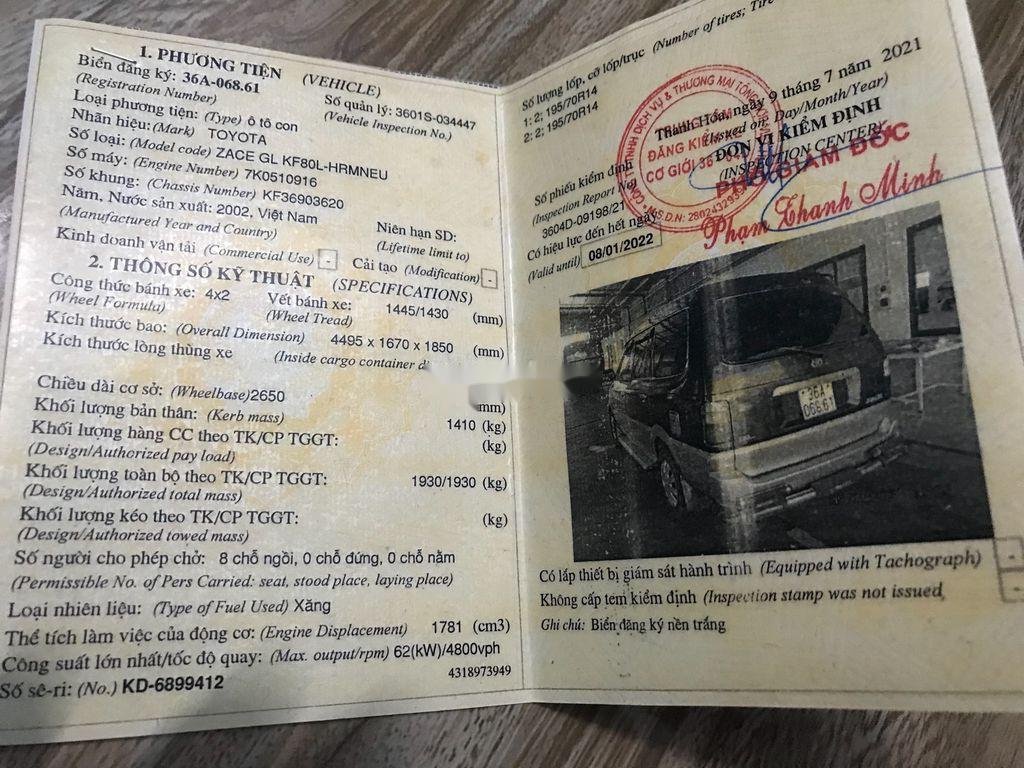 1. PHƯƠNG TIỆN (VEHICLE)
Biển đăng ký: 36A-068.61 Số quản lý: 3601S-034447
(Registration Number) (Vehicle Inspection No.)
Loại phương tiện: (Type) ô tô con
Nhãn hiệu: (Mark) TOYOTA
Số loại: (Model code) ZACE GL KF80L-HRMNEU
Số máy: (Engine Number) 7K0510916
Số khung: (Chassis Number) KF36903620
Năm, Nước sản xuất: 2002, Việt Nam Niên hạn SD:
(Manufactured Year and Country) (Lifetime limit to)
Kinh doanh vận tải (Commercial Use) - Cải tạo (Modification) -
2. THÔNG SỐ KỸ THUẬT (SPECIFICATIONS)
Công thức bánh xe: 4x2 Vết bánh xe: 1445/1430 (mm)
(Wheel Formula) (Wheel Tread)
Kích thước bao: (Overall Dimension) 4495 x 1670 x 1850 (mm)
Kích thước lòng thùng xe (Inside cargo container
Chiều dài cơ sở: (Wheelbase) 2650 mm)
Khối lượng bản thân: (Kerb mass) 1410 (kg)
Khối lượng hàng CC theo TK/CP TGGT: (kg)
(Design/Authorized pay load)
Khối lượng toàn bộ theo TK/CP TGGT: 1930/1930 (kg)
(Design/Authorized total mass)
Khối lượng kéo theo TK/CP TGGT: (kg)
(Design/Authorized towed mass)
Số người cho phép chở: 8 chỗ ngồi, 0 chỗ đứng, 0 chỗ nằm
(Permissible No. of Pers Carried: seat, stood place, laying place)
Loại nhiên liệu: (Type of Fuel Used) Xăng
Thể tích làm việc của động cơ: (Engine Displacement) 1781 (cm3)
Công suất lớn nhất/tốc độ quay: (Max. output/rpm) 62(kW)/4800vph
4318973949
Số sê-ri: (No.) KD-6899412
Số lượng lốp, cỡ lốp/trục (Number of tires; Tire
1: 2; 195/70R14
2: 2; 195/70R14
Thanh Hóa, ngày 9 tháng 7 năm 2021
(Issued on: Day/Month/Year)
ĐƠN VỊ KIỂM ĐỊNH
(INSPECTION CENTER)
ĐĂNG KIỂM
CƠ GIỚI 36
PHÓ GIÁM ĐỐC
Phạm Thanh Minh
Số phiếu kiểm định
(Inspection Report No)
3604D-09198/21
Có hiệu lực đến hết ngày
(Valid until) 08/01/2022
36A
068.61
Có lắp thiết bị giám sát hành trình (Equipped with Tachograph) -
Không cấp tem kiểm định (Inspection stamp was not issued, -
Ghi chú: Biển đăng ký nền trắng